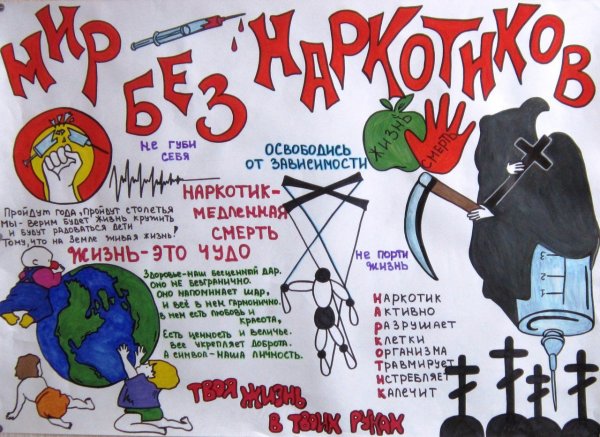 МИР
БЕЗ НАРКОТИКОВ
НЕ ГУБИ
СЕБЯ
ОСВОБОДИСЬ
ОТ ЗАВИСИМОСТИ
ЖИЗНЬ
СМЕРТЬ
НАРКОТИК-
МЕДЛЕННАЯ
СМЕРТЬ
Пройдут года, пройдут столетья
Мы - верим будет жизнь кружить
и будут радоваться дети
Тому, что на Земле живая жизнь!
ЖИЗНЬ-ЭТО ЧУДО
Здоровье-наш бесценный дар.
Оно не безгранично.
Оно напоминает шар,
и всё в нем гармонично.
В нем есть любовь и
красота,
Есть ценность и величье.
Все укрепляет доброта.
А символ-наша личность.
НЕ ПОРТИ
ЖИЗНЬ
НАРКОТИК
АКТИВНО
РАЗРУШАЕТ
КЛЕТКИ
ОРГАНИЗМА
ТРАВМИРУЕТ
ИСТРЕБЛЯЕТ
КАЛЕЧИТ
3
2
1
ТВОЯ ЖИЗНЬ
В ТВОИХ РУКАХ